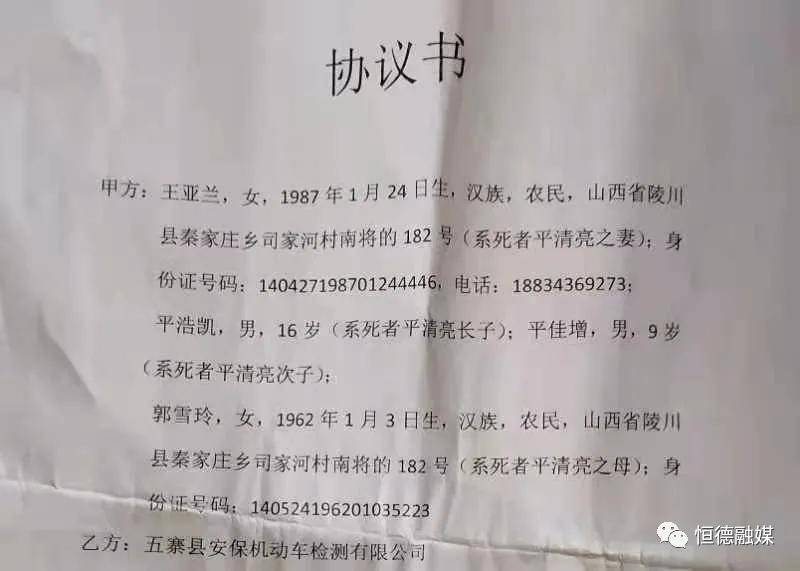 协议书
甲方：王亚兰，女，1987年1月24日生，汉族，农民，山西省陵川
县秦家庄乡司家河村南将的182号（系死者平清亮之妻）；身
份证号码：140427198701244446，电话：18834369273；
平浩凯，男，16岁（系死者平清亮长子）；平佳增，男，9岁
（系死者平清亮次子）；
郭雪玲，女，1962年1月3日生，汉族，农民，山西省陵川
县秦家庄乡司家河村南将的182号（系死者平清亮之母）；身
份证号码：140524196201035223
乙方：五寨县安保机动车检测有限公司
恒德融媒